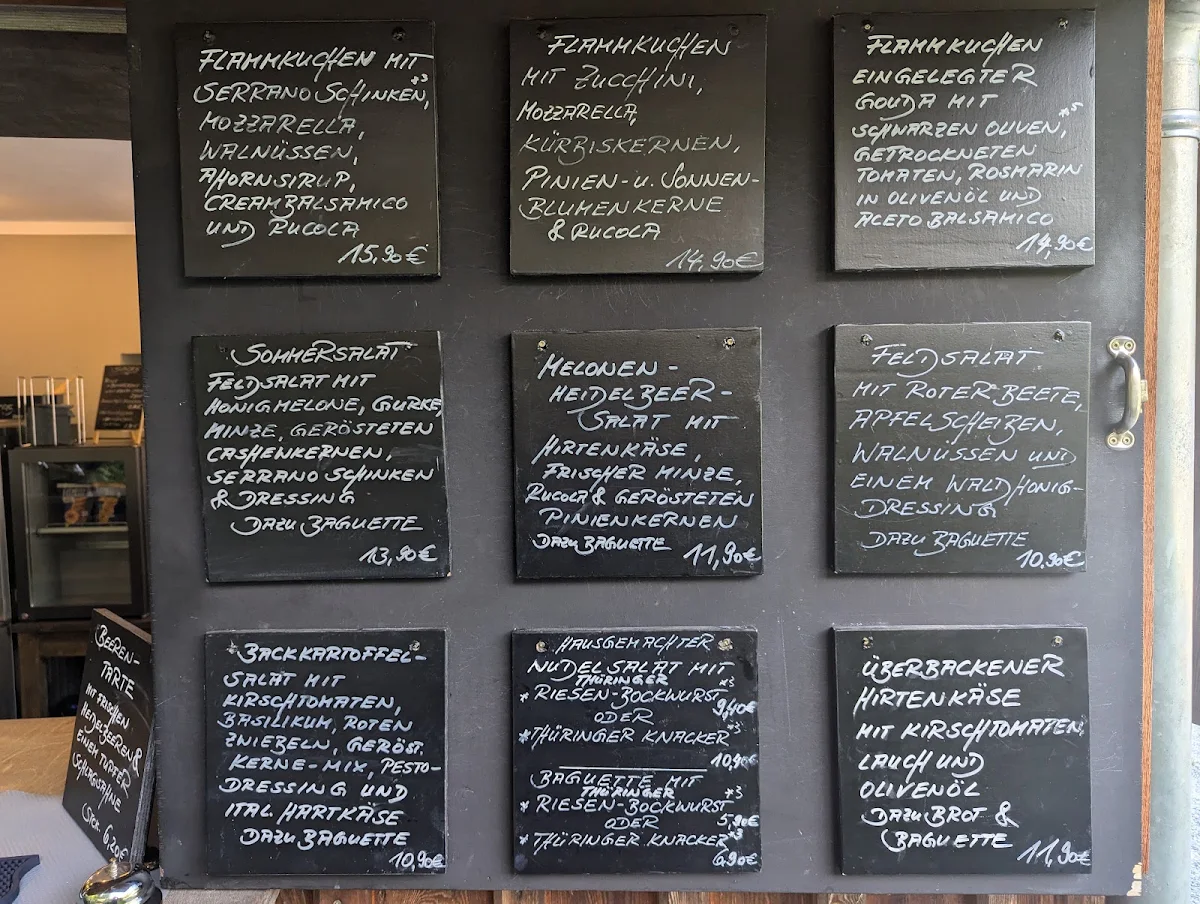 FLAMMKUCHEN MIT
SERRANO SCHINKEN, *3
MOZZARELLA,
WALNÜSSEN,
AHORNSIRUP,
CREAM BALSAMICO
UND RUCOLA
15,90€
FLAMMKUCHEN
MIT ZUCCHINI,
MOZZARELLA,
KÜRBISKERNEN,
PINIEN- U. SONNEN-
BLUMENKERNE
& RUCOLA
14,90€
FLAMMKUCHEN
EINGELEGTER
GOUDA MIT
SCHWARZEN OLIVEN, *5
GETROCKNETEN
TOMATEN, ROSMARIN
IN OLIVENÖL UND
ACETO BALSAMICO
14,90€
SOMMERSALAT
FELDSALAT MIT
HONIGMELONE, GURKE,
MINZE, GERÖSTETEN
CASHENKERNEN,
SERRANO SCHINKEN
& DRESSING
DAZU BAGUETTE
13,90€
MELONEN-
HEIDELBEER-
SALAT MIT
HIRTENKÄSE,
FRISCHER MINZE,
RUCOLA & GERÖSTETEN
PINIENKERNEN
DAZU BAGUETTE 11,90€
FELDSALAT
MIT ROTER BEETE,
APFELSCHEIBEN,
WALNÜSSEN UND
EINEM WALDHONIG-
DRESSING
DAZU BAGUETTE
10,90€
BACKKARTOFFEL-
SALAT MIT
KIRSCHTOMATEN,
BASILIKUM, ROTEN
ZWIEBELN, GERÖST.
KERNE-MIX, PESTO-
DRESSING UND
ITAL. HARTKÄSE
DAZU BAGUETTE
10,90€
HAUSGEMACHTER
NUDELSALAT MIT
THÜRINGER
* RIESEN-BOCKWURST *3
9,40€
ODER
* THÜRINGER KNACKER *3
10,90€
BAGUETTE MIT
THÜRINGER
* RIESEN-BOCKWURST *3
ODER 5,90€
* THÜRINGER KNACKER *3
6,90€
ÜBERBACKENER
HIRTENKÄSE
MIT KIRSCHTOMATEN,
LAUCH UND
OLIVENÖL
DAZU BROT &
BAGUETTE
11,90€
BEEREN-
TARTE
MIT FRISCHEN
HEIDELBEEREN &
EINEM TUPFER
SCHLAGSAHNE
STCK. 6,20€